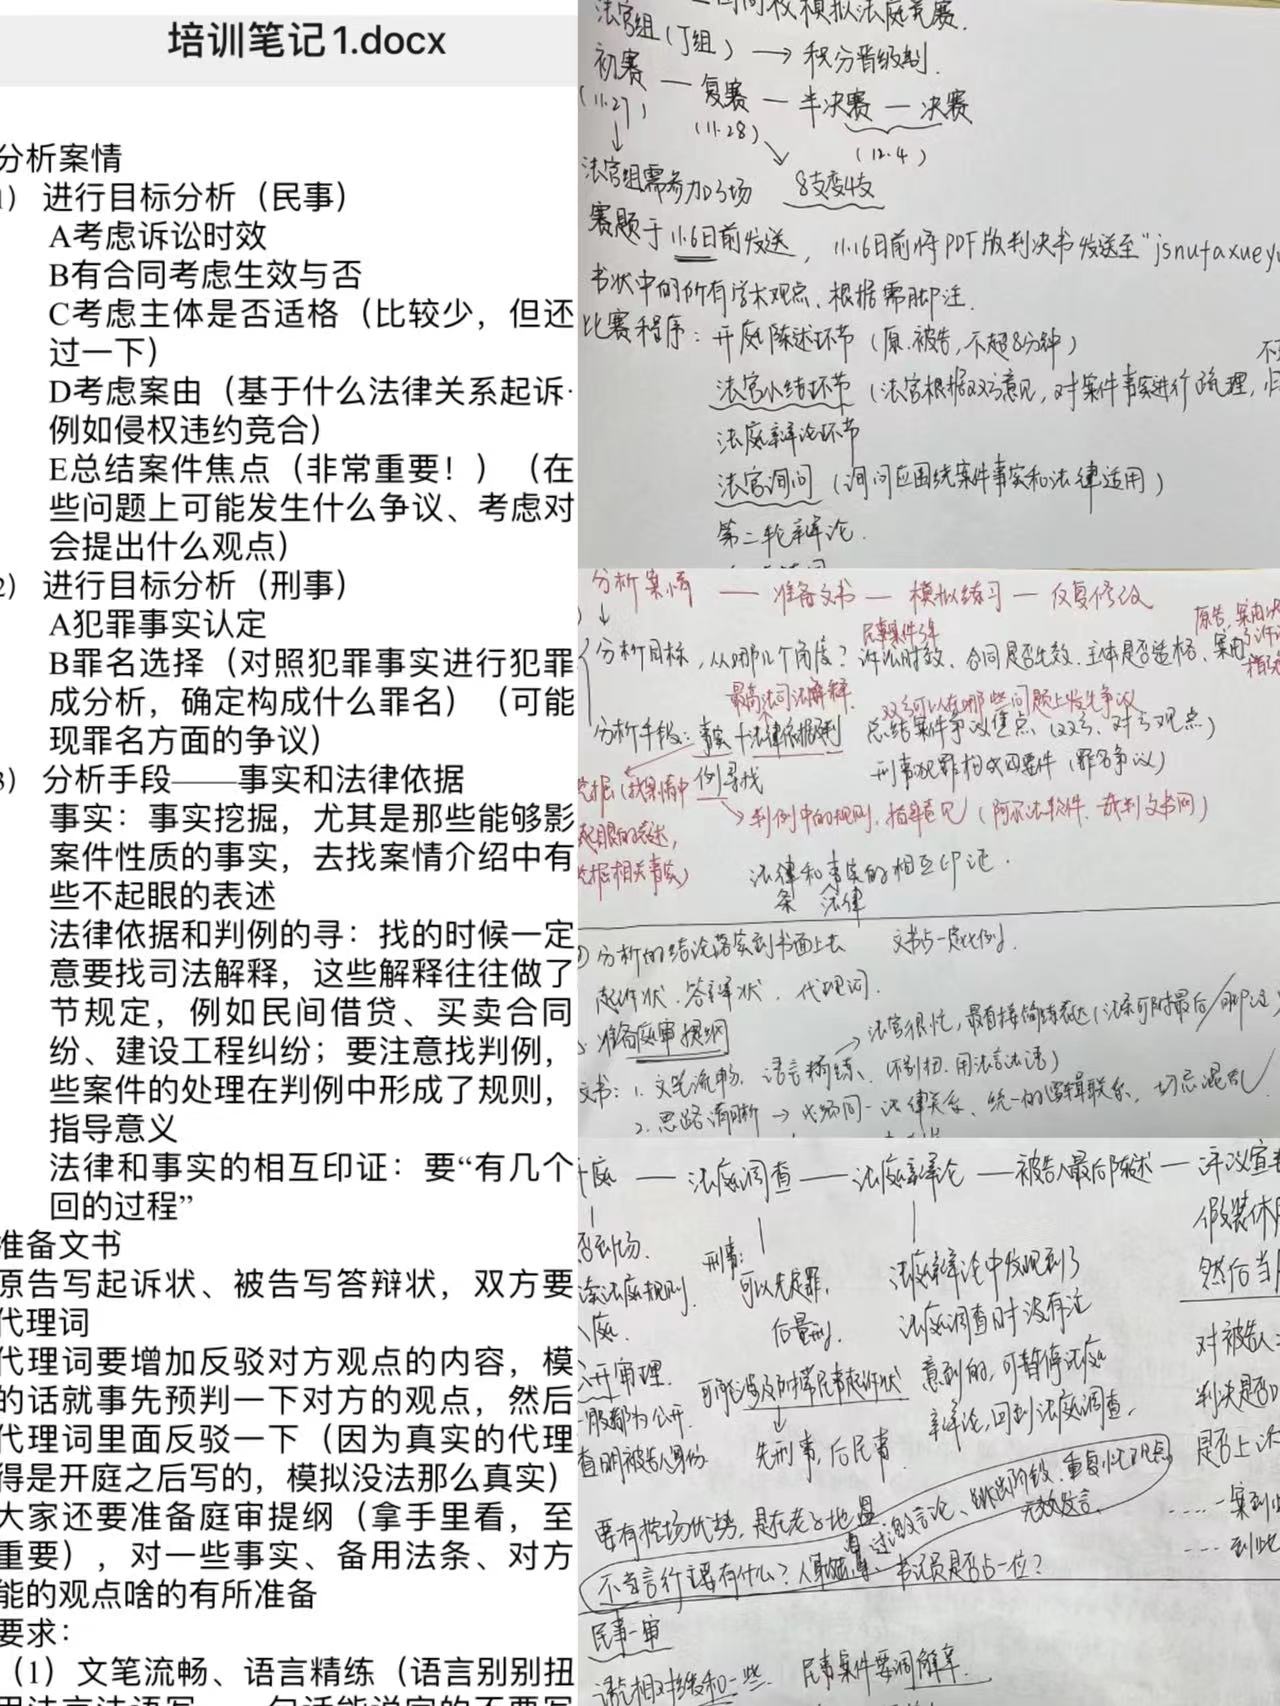 培训笔记1.docx
分析案情
进行目标分析（民事）
A考虑诉讼时效
B有合同考虑生效与否
C考虑主体是否适格（比较少，但还
过一下）
D考虑案由（基于什么法律关系起诉·
例如侵权违约竞合）
E总结案件焦点（非常重要！）（在
些问题上可能发生什么争议、考虑对
会提出什么观点）
2） 进行目标分析（刑事）
A犯罪事实认定
B罪名选择（对照犯罪事实进行犯罪
成分析，确定构成什么罪名）（可能
现罪名方面的争议）
3） 分析手段——事实和法律依据
事实：事实挖掘，尤其是那些能够影
案件性质的事实，去找案情介绍中有
些不起眼的表述
法律依据和判例的寻：找的时候一定
意要找司法解释，这些解释往往做了
节规定，例如民间借贷、买卖合同
纷、建设工程纠纷；要注意找判例，
些案件的处理在判例中形成了规则，
指导意义
法律和事实的相互印证：要“有几个
回的过程”
准备文书
原告写起诉状、被告写答辩状，双方要
代理词
代理词要增加反驳对方观点的内容，模
的话就事先预判一下对方的观点，然后
代理词里面反驳一下（因为真实的代理
得是开庭之后写的，模拟没法那么真实）
大家还要准备庭审提纲（拿手里看，至
重要），对一些事实、备用法条、对方
能的观点啥的有所准备
要求：
（1）文笔流畅、语言精练（语言别别扭
模拟法庭竞赛.
法官组（J组） → 积分晋级制.
初赛 — 复赛 — 半决赛 — 决赛
（11.27） （11.28） （12.4）
法官组需参加3场 8支变4支
赛题于11.6日前发送，11.16日前将PDF版判决书发送至“jsnufaxueyu
书状中的所有学术观点、根据需脚注.
比赛程序：开庭陈述环节（原.被告，不超8分钟）
法官小结环节（法官根据双方意见，对案件事实进行梳理，归
法庭辩论环节
法官询问（询问应围绕案件事实和法律适用）
第二轮辩论.
分析案情 — 准备文书 — 模拟练习 — 反复修改
民事案件3年
分析目标，从哪几个角度？诉讼时效、合同是否生效、主体是否适格、案由
最高法司法解释. 双方可以在哪些问题上发生争议
分析手段：事实+法律依据及判 总结案件争议焦点（双方、对方观点）
例寻找 刑事犯罪构成四要件（罪名争议）
挖掘（找案情中
→ 判例中的规则、指导意见（阿尔法软件、裁判文书网）
起眼的表述，
挖掘相关事实）
法律和事实的相互印证.
条 法律
分析的结论落实到书面上去 文书占一定比例.
起诉状、答辩状、代理词.
准备庭审提纲 → 法官很忙，最直接简练表达（法条可附最后/脚注
文书：1. 文笔流畅、语言精练、（不别扭、用法言法语）
2. 思路清晰 → 必须同一法律关系、统一的逻辑联系，切忌混乱
庭 — 法庭调查 — 法庭辩论 — 被告人最后陈述 — 评议宣
否到场.
刑事：
可以先定罪，
后量刑.
法庭辩论中发现到了
法庭调查时没有注
意到的，可暂停法庭
辩论，回到法庭调查.
假装休
然后当
读法庭规则.
庭.
公开审理.
一般都为公开.
查明被告人身份
可能涉及附带民事起诉状
先刑事，后民事.
对被告人
判决是否
是否上诉
要有控场优势，是在老子地盘
过激言论、跳出阶段、重复性观点
无效发言.
不当言行主要有什么？人身攻击、书记员是否占一位？
民事一审
语气相对缓和一些. 民事案件要调解率.